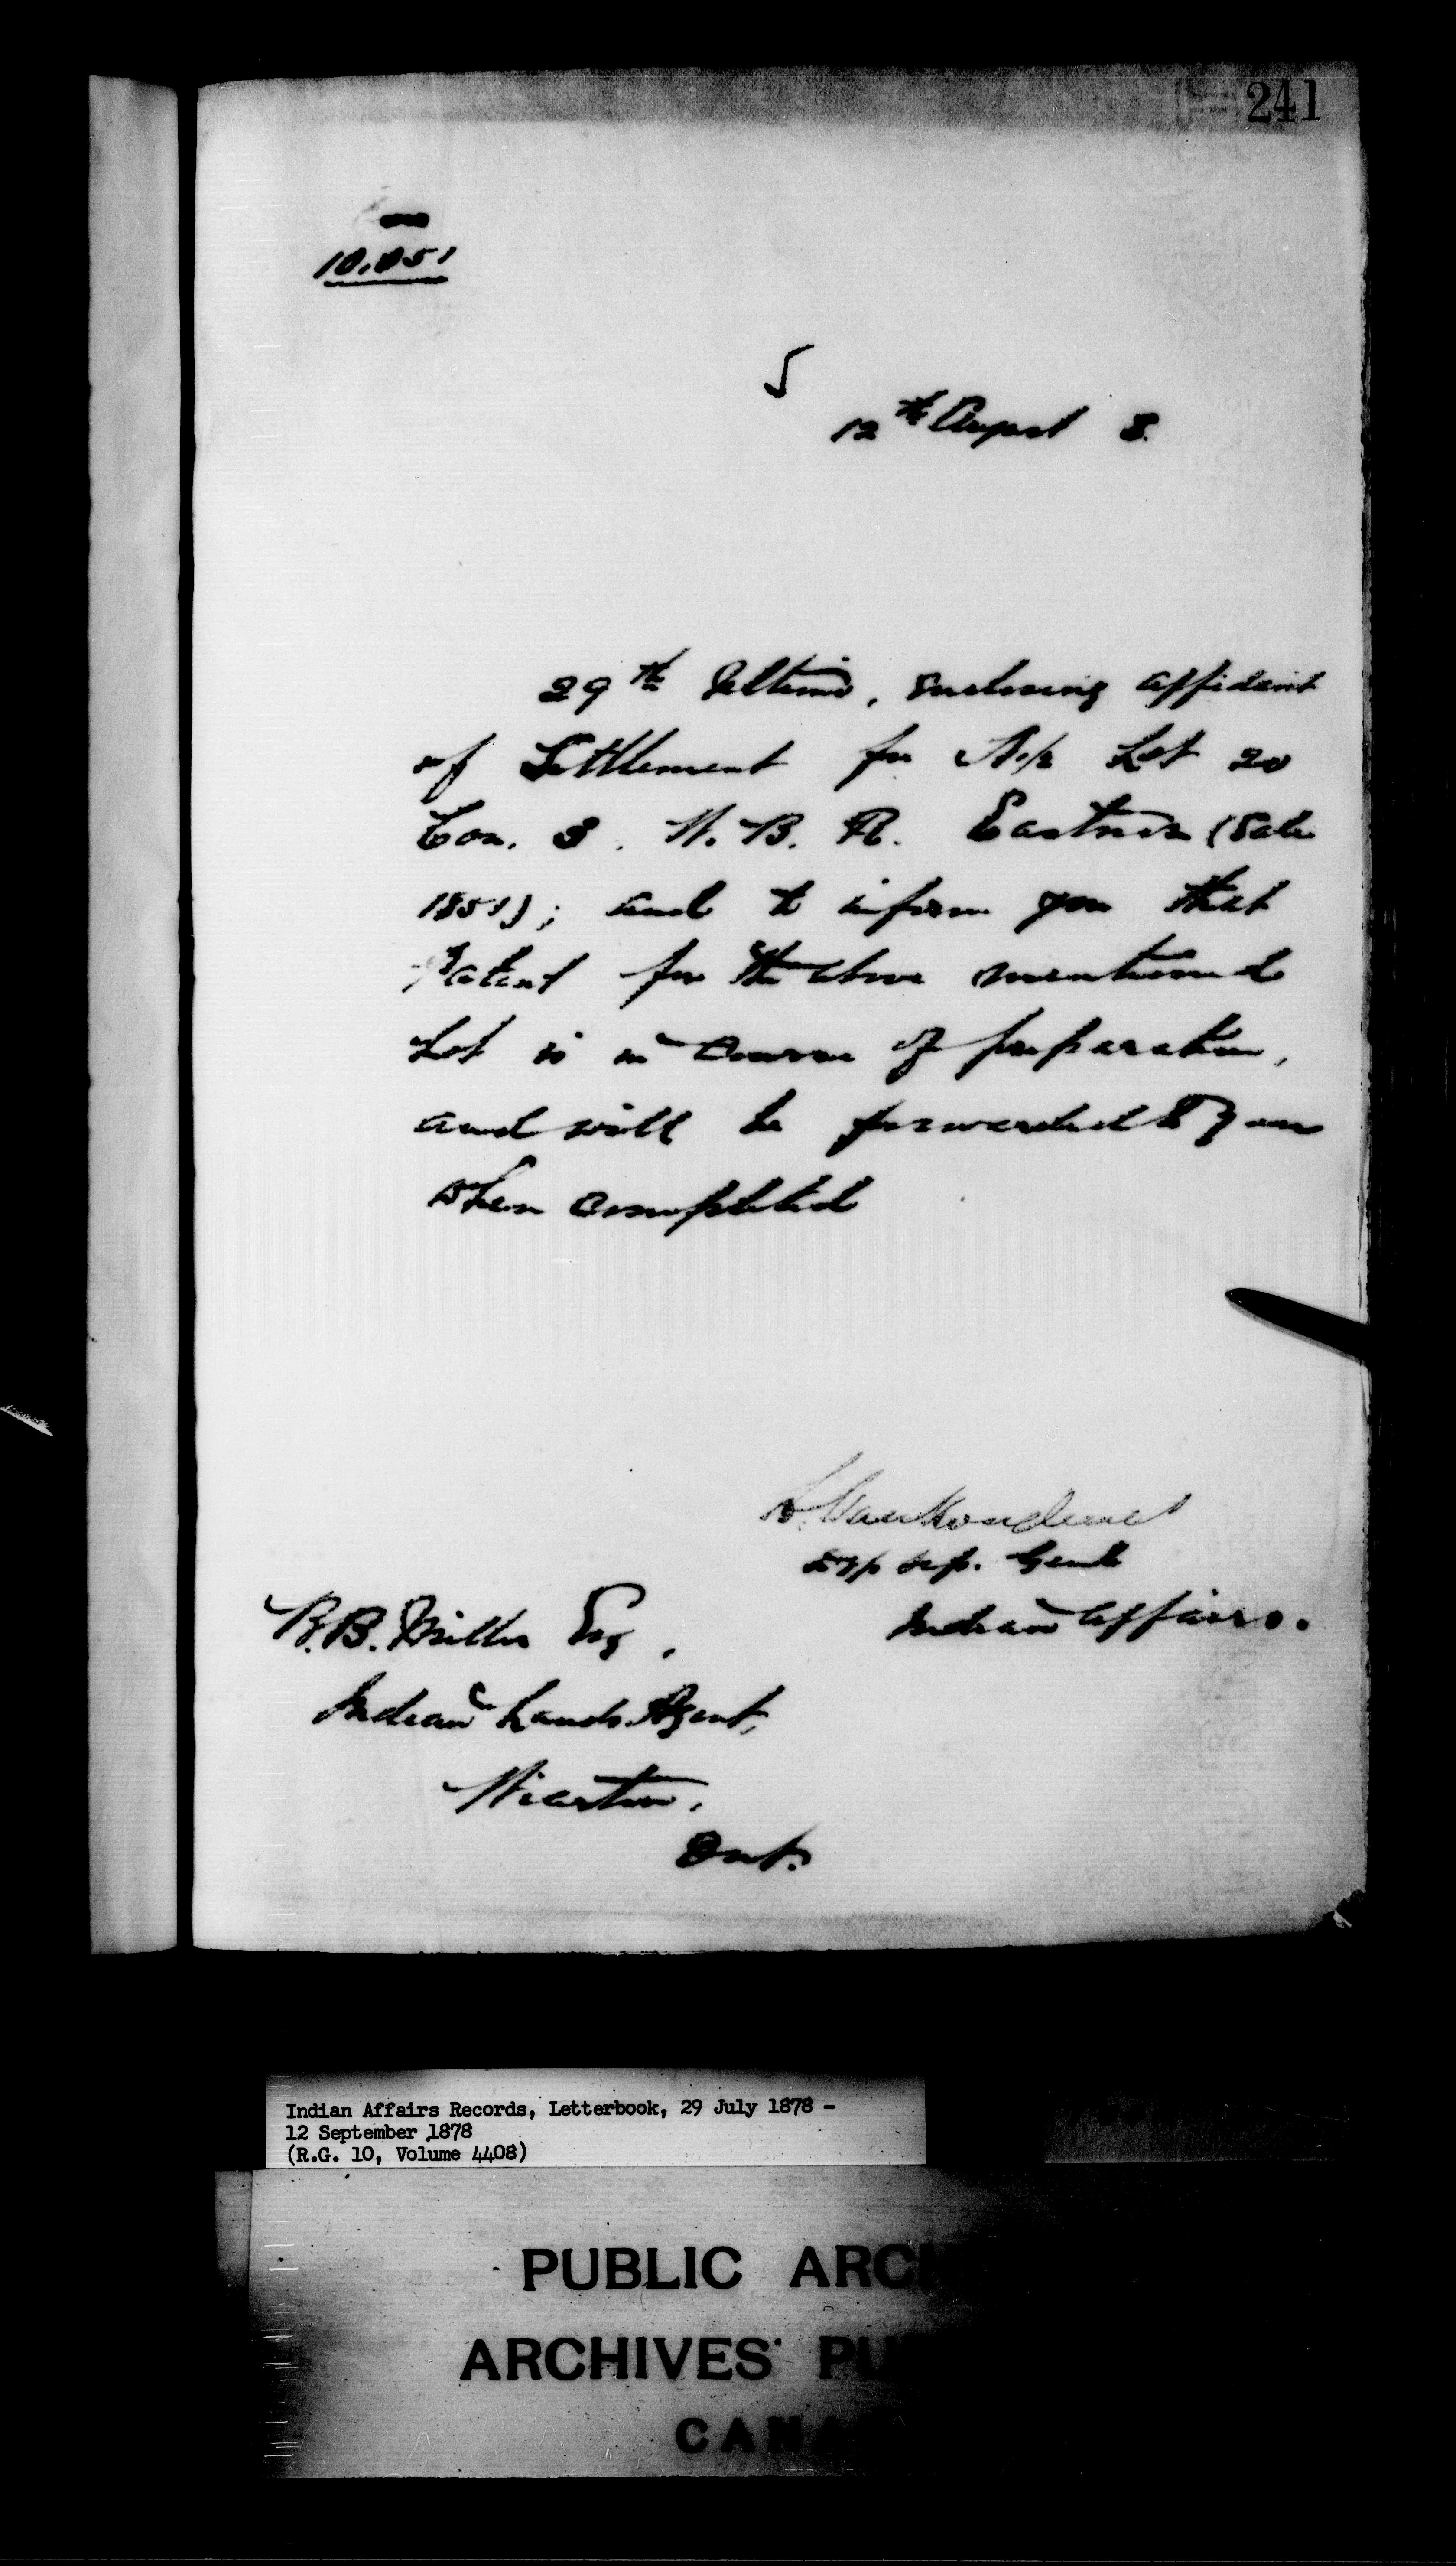 241
10,051
12th August 8.
29th Ultimo, enclosing affidavit
of Settlement for N1/2 Lot 20
Con. 3. W. B. R. Eastnor (Sale
1851); and to inform you that
Patent for the above mentioned
Lot is in course of preparation,
and will be forwarded to you
when completed
L. VanKoughnet
Dep Sup. Genl
Indian Affairs.
B. B. Miller Esq,
Indian Lands Agent,
Wiarton,
Ont.
Indian Affairs Records, Letterbook, 29 July 1878 -
12 September 1878
(R.G. 10, Volume 4408)
PUBLIC ARCH
ARCHIVES PU
CANA